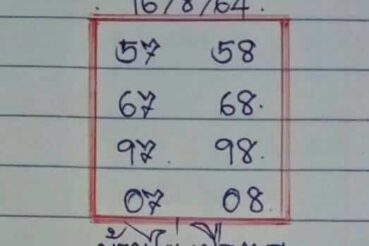 16/8/64.
57 58
67 68.
97. 98.
07 08.